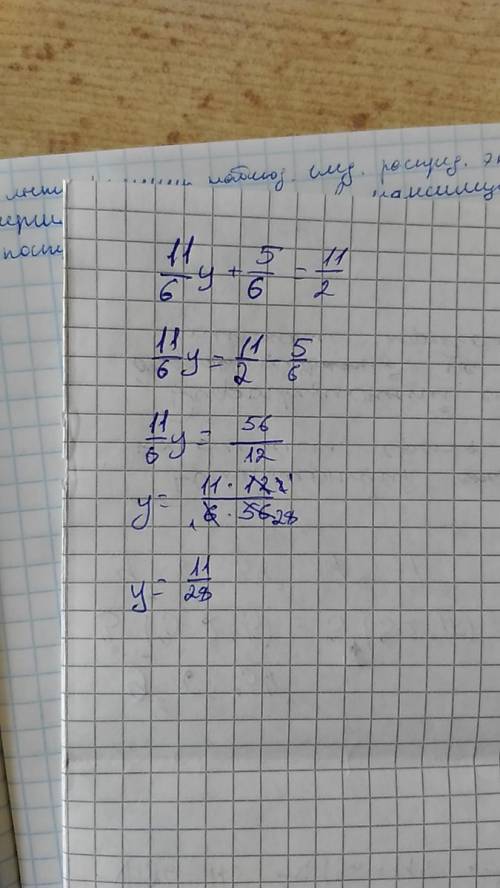 наблюд. след. распред.
11/6 y + 5/6 = 11/2
11/6 y = 11/2 - 5/6
11/6 y = 56/12
y = 11 · 12 2 / 1 6 · 56 28
y = 11/28